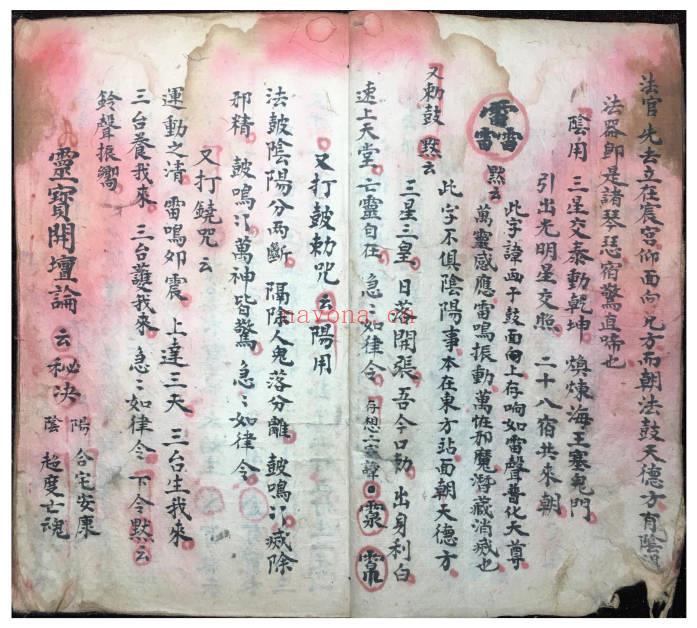 法官先去立在宸宮仰面向兄方而朝法鼓天德方有陰
法器即是諸琴瑟宿驚直啼也
陰用 三星交泰動乾坤 煥煉海王塞鬼門
引出光明星交照 二十八宿共來朝
此字諱西于鼓面向上存响如雷聲普化天尊
默云 萬靈感應雷鳴振動萬怔邪魔潛藏消滅也
此字不俱陰陽事本在東方站面朝天德方
又勅鼓 默云
三星三皇 日落開張 吾今口勅 出身利白
速上天堂 亡靈自在 急〻如律令 存想二字諱
又打鼓勅咒 云 陽用
法鼓陰陽分両斷 隔除人鬼落分離 鼓鳴〻滅除
邪精 鼓鳴〻萬神皆驚 急〻如律令
又打鐃咒云
運動之清 雷鳴如震 上達三天 三台生我來
三台養我來 三台護我來 急〻如律令 下令默云
鈴聲振嚮
靈寶開壇論 云秘决 陽 合宅安康
陰 超度亡魂
nayona.cn